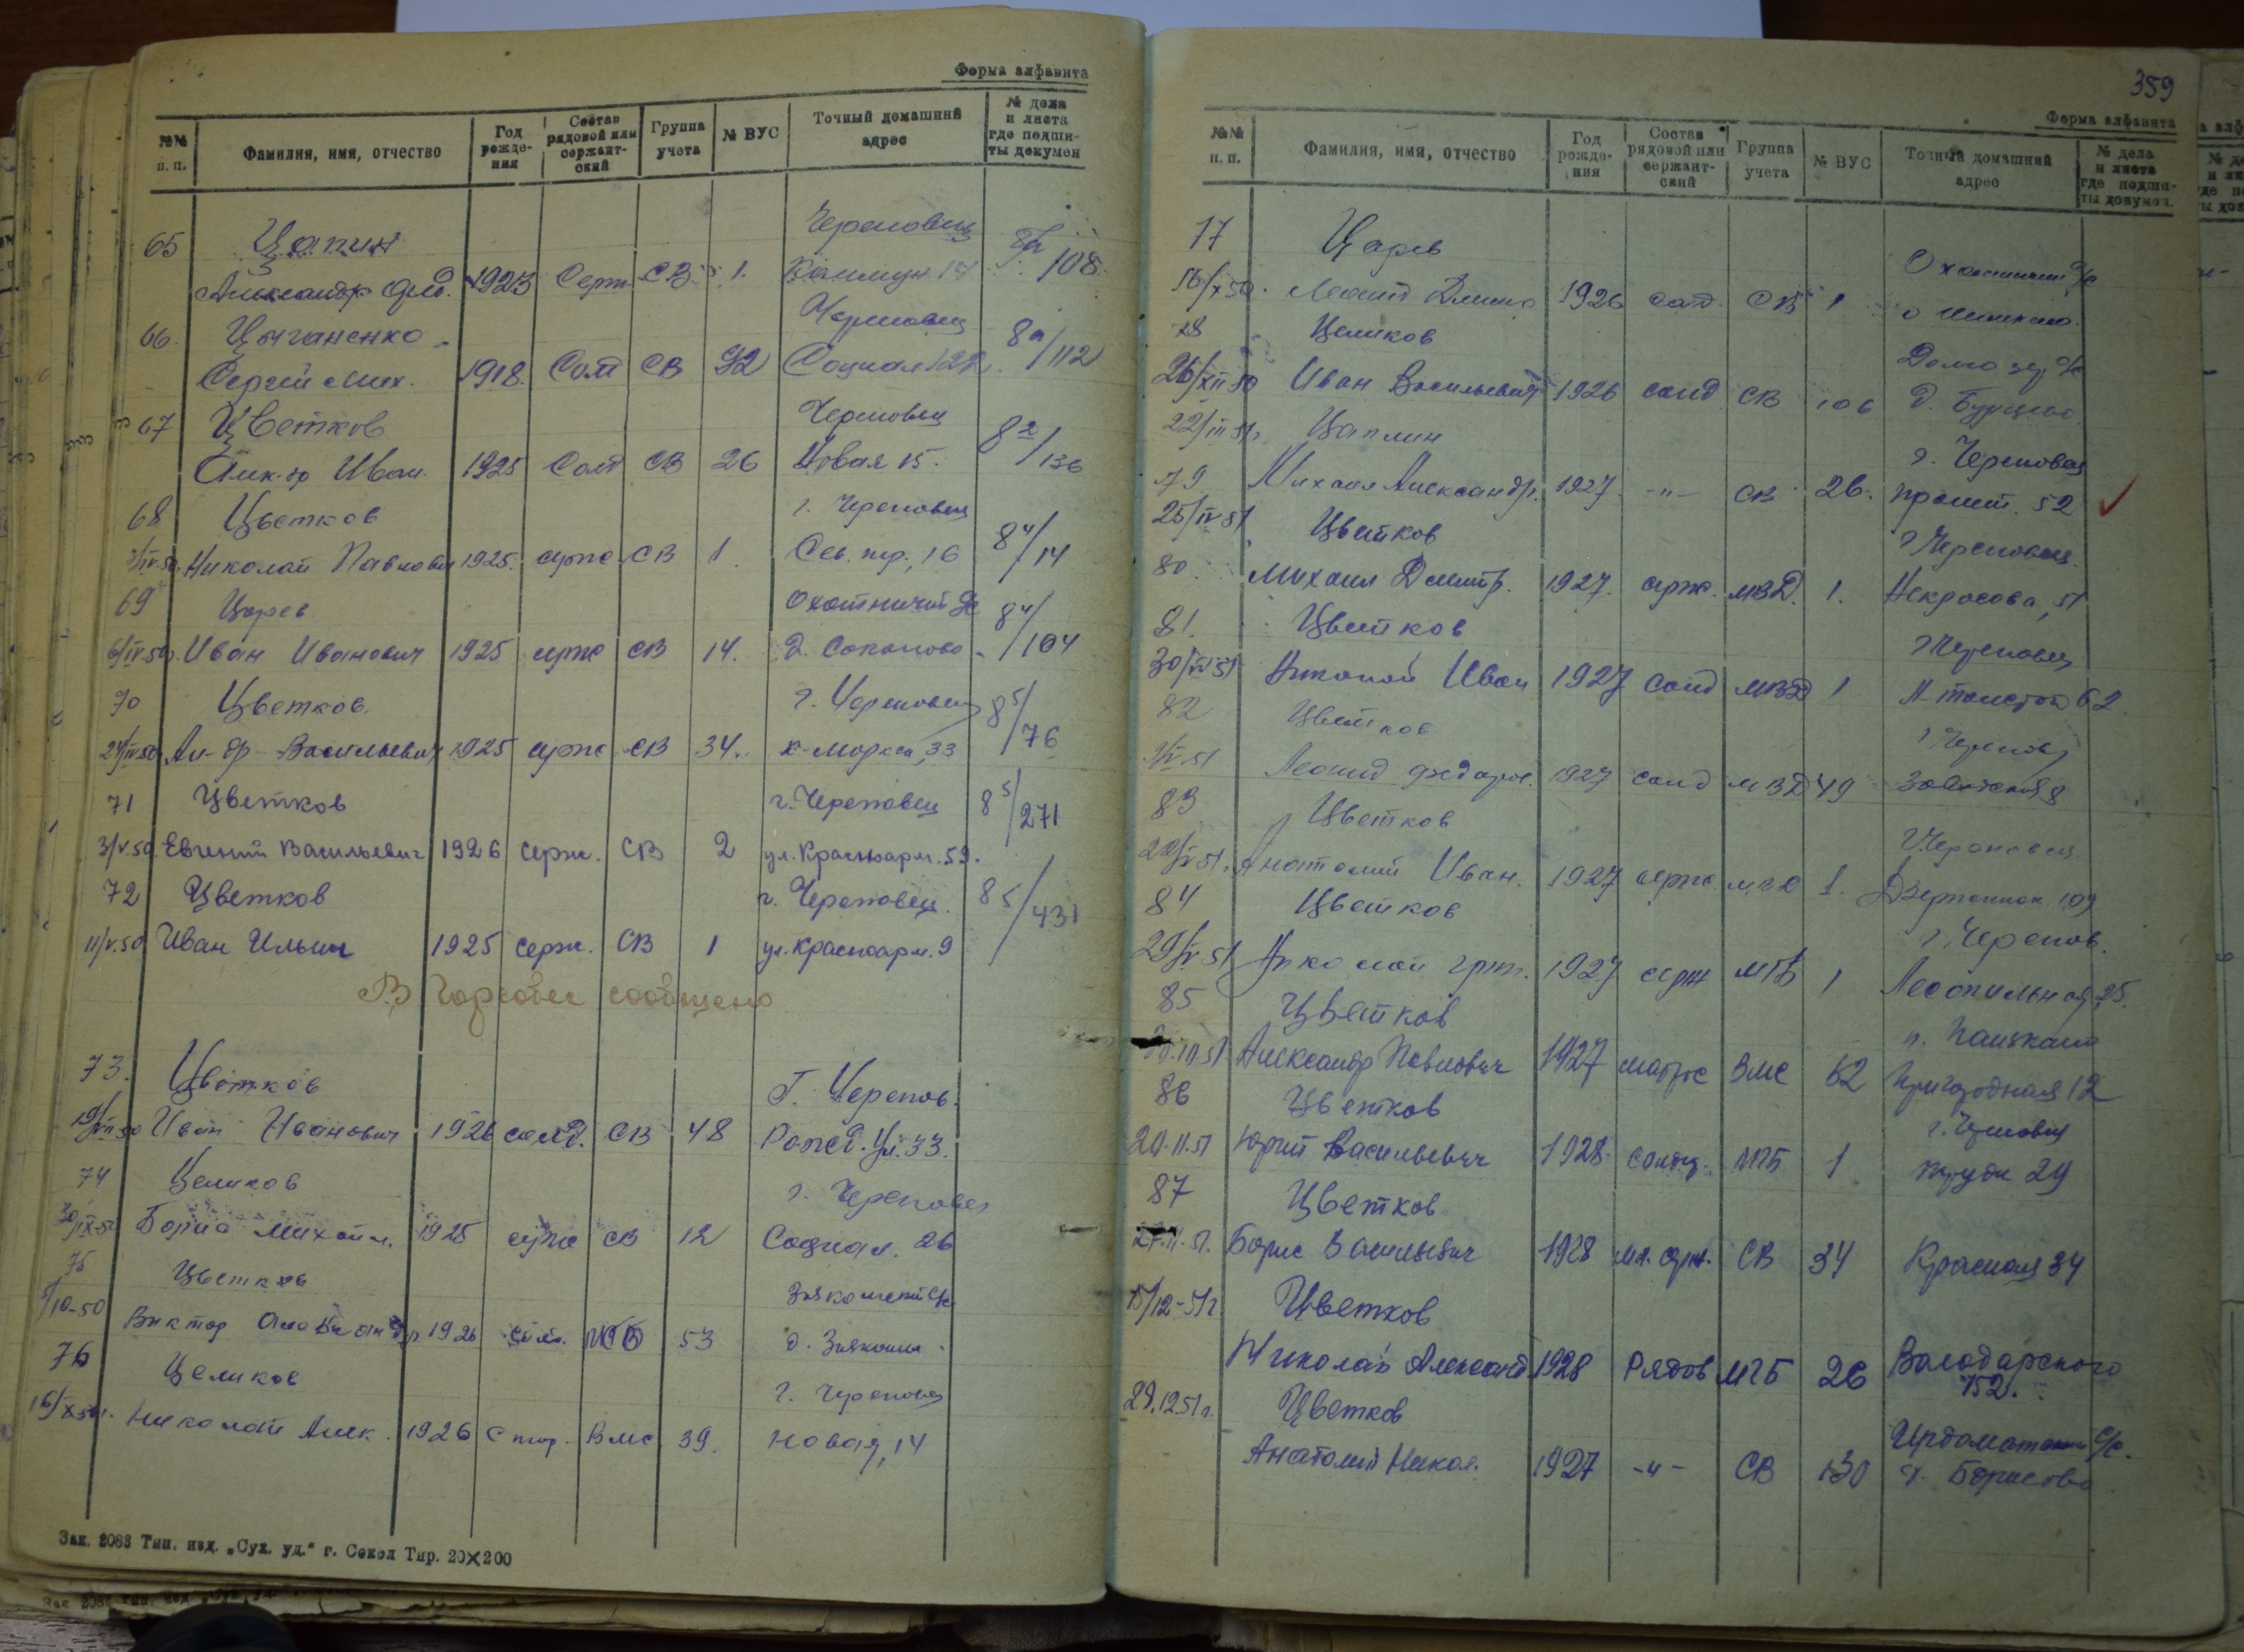 Форма алфавита
№№ п. п.
Фамилия, имя, отчество
Год рожде-ния
Состав рядовой или сержант-ский
Группа учета
№ ВУС
Точный домашний адрес
№ дела и листа где подши-ты докумен
65 Цапин Череповец
Александр 1923 Серж СВ 1. 14 108
66. Цыганенко Череповец
Сергей Мих. 1918. Солд СВ 92 Социал 122 8а/112
67 Цветков Череповец
Алк-др Иван. 1925 Солд СВ 26 Новая 15. 82/136
68 Цветков г. Череповец
Николай Павлович 1925. серж СВ 1. Сов. пр. 16 84/14
69 Царев Охотничий с/с
6/IV-50г. Иван Иванович 1925 серж СВ 14. д. Соколово 84/104
70 Цветков. г. Череповец
24/IV-50 Ал-др Васильевич 1925 серж СВ 34. К-Маркса, 33 85/76
71 Цветков г. Череповец
3/V.50. Евгений Васильевич 1926 серж. СВ 2 ул. Красноарм. 59. 85/271
72 Цветков г. Череповец.
11/V.50 Иван Ильич 1925 серж. СВ 1 ул. Красноарм. 9 85/431
В сообщено
73. Цветков Г. Черепов.
19/VII-50 Иван Иванович 1926 солд. СВ 48 Ул. 33.
74 Целиков г. Череповец
30/IX-50 Борис Михайл. 1925 серж СВ 12 Социал. 26
75 Цветков с/с
5/10-50 Виктор Александр 1926 53 д.
76 Целиков г. Череповец
16/X50г. Николай Алек. 1926 ВМС 39. Новая, 14
Зак. 2083 Тип. изд. „Сух. уд.“ г. Сокол Тир. 20×200
359
Форма алфавита
№№ п. п.
Фамилия, имя, отчество
Год рожде-ния
Состав рядовой или сержант-ский
Группа учета
№ ВУС
Точный домашний адрес
№ дела и листа где подши-ты докумен.
77 Царев Охотничий с/с
16/X50. Леонид 1926 солд. СВ 1
78 Целиков с/с
26/XII 50 Иван Васильевич 1926 солд СВ 106 д.
22/III 51г. Цаплин г. Череповец
79 Михаил Александр. 1927. -"- СВ 26. 52
25/IV 51 Цветков г Череповец.
80. Михаил Дмитр. 1927. серж. МВД. 1. Некрасова, 51
81. Цветков г Череповец
30/IV 51 Николай Иван 1927 солд МВД 1 Л-Толстого 62.
82 Цветков г Черепов
Леонид Федоров. 1927 солд МВД 49 8
83 Цветков г. Череповец.
22/V 51. Анатолий Иван. 1927 серж. 1. Дзержинск. 109
84 Цветков г. Черепов.
29/V 51 Николай Григ. 1927 серж МГБ 1 Лесопильная 25.
85 Цветков
Александр Павлович 1927 матрос ВМС 62 Пригородная 12
86 Цветков г. Череповец
20.11.51 Юрий Васильевич 1928. солд. МГБ 1 Труда 29
87 Цветков
27.11.51. Борис Васильевич 1928 мл. серж. СВ 34 Красная 34
15/12-51г Цветков
Николай Александ 1928 Рядов МГБ 26 Володарского 152.
29.12.51г. Цветков Ирдоматский с/с.
Анатолий Никол. 1927 -"- СВ 130 д. Борисово